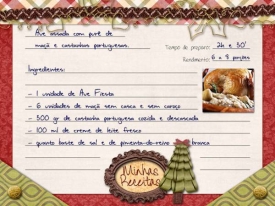 Ave assada com purê de
maçã e castanhas portuguesas.
Tempo de preparo: 2h e 30'
Rendimento: 6 a 8 porções
Ingredientes:
- 1 unidade de Ave Fiesta
- 6 unidades de maçã sem casca e sem caroço
- 500 gr de castanha portuguesa cozida e descascada
- 100 ml de creme de leite fresco
- quanto baste de sal e de pimenta-do-reino branca
Minhas
Receitas